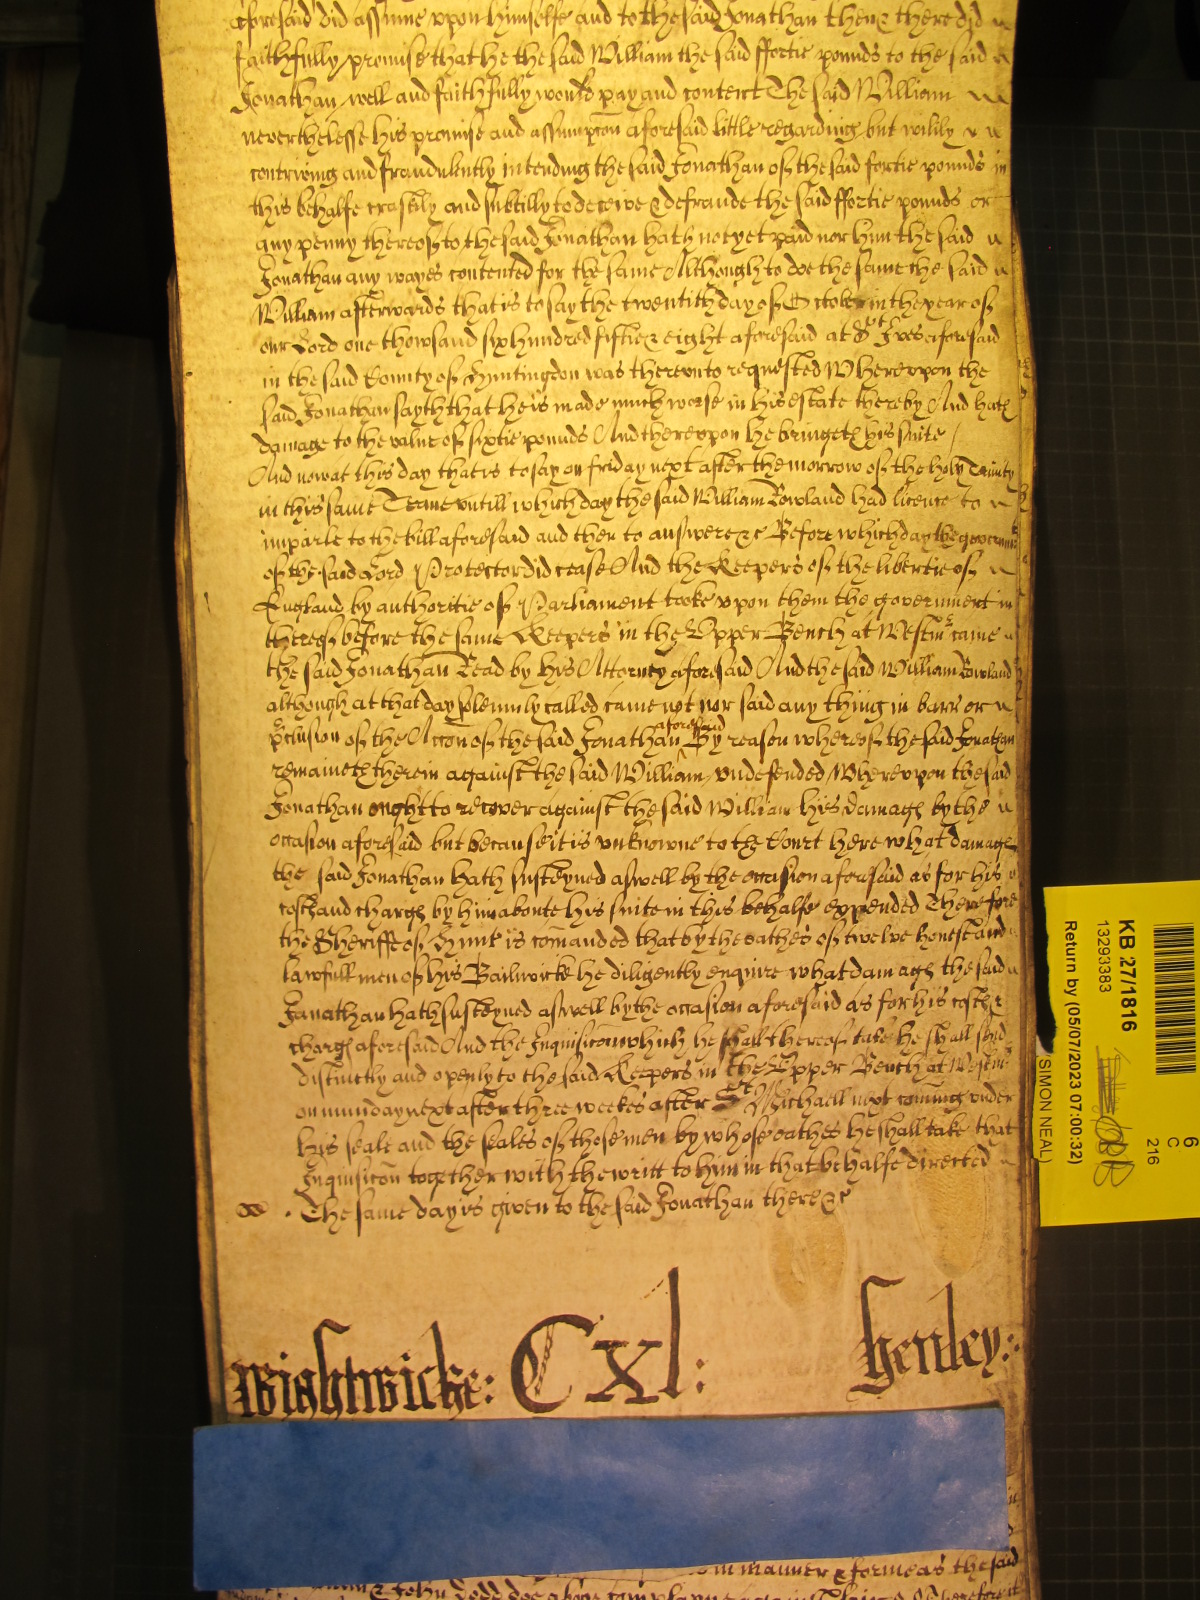 aforesaid did assume upon himselfe and to the said Jonathan then & there did
faithfully promise that he the said William the said ffortie pounds to the said
Jonathan well and faithfully would pay and content The said William
neverthelesse his promise and assumpcon aforesaid little regarding but wilily
contriving and fraudulently intending the said Jonathan of the said fortie pounds in
this behalfe craftily and subtilly to deceive & defraude the said ffortie pounds or
any penny thereof to the said Jonathan hath not yet paid nor him the said
Jonathan any wayes contented for the same Although to doe the same the said
William afterwards that is to say the twentith day of October in the yeare of
our Lord one thowsand six hundred fiftie & eight aforesaid at St Ives aforesaid
in the said County of Huntingdon was thereunto requested Whereupon the
said Jonathan sayth that he is made much worse in his estate thereby And hath
damage to the value of sixtie pounds And thereupon he bringeth his suite /
And now at this day that is to say on friday next after the morrow of the holy Trinity
in this same Terme untill which day the said William Rowland had licence to
imparle to the bill aforesaid and then to answere &c Before which day the governmt
of the said Lord Protector did cease And the Keepers of the libertie of
England by authoritie of Parliament tooke upon them the government
thereof before the same Keepers in the Upper Bench at Westmr came
the said Jonathan Read by his Attorney aforesaid And the said William Rowland
although at that day solemnly called came not nor said any thing in barr or
pclusion of the Accon of the said Jonathan aforesaid By reason whereof the said Jonathan
remaineth therein against the said William undefended Whereupon the said
Jonathan ought to recover against the said William his damages by the
occasion aforesaid but because it is unknowne to the Court here what damages
the said Jonathan hath susteyned aswell by the occasion aforesaid as for his
costs and charges by him aboute his suite in this behalfe expended Therefore
the Sheriffe of Hunt is comanded that by the oathes of twelve honest and
lawfull men of his Bailiwick he diligently enquire what damages the said
Jonathan hath susteyned aswell by the occasion aforesaid as for his costs &
charges aforesaid And the Inquisicon which he shall thereof take he shall send
distinctly and openly to the said Keepers in the Upper Bench at Westmr
on munday next after three weekes after St Michaell next coming under
his seale and the seales of those men by whose oathes he shall take that
Inquisicon together with the writt to him in that behalfe directed
The same day is given to the said Jonathan there &c
Wightwicke: CXl: Henley:
in manner & forme as the said
KB 27/1816
13293383
Return by (05/07/2023 07:00:32)
(SIMON NEAL)
6
C
216